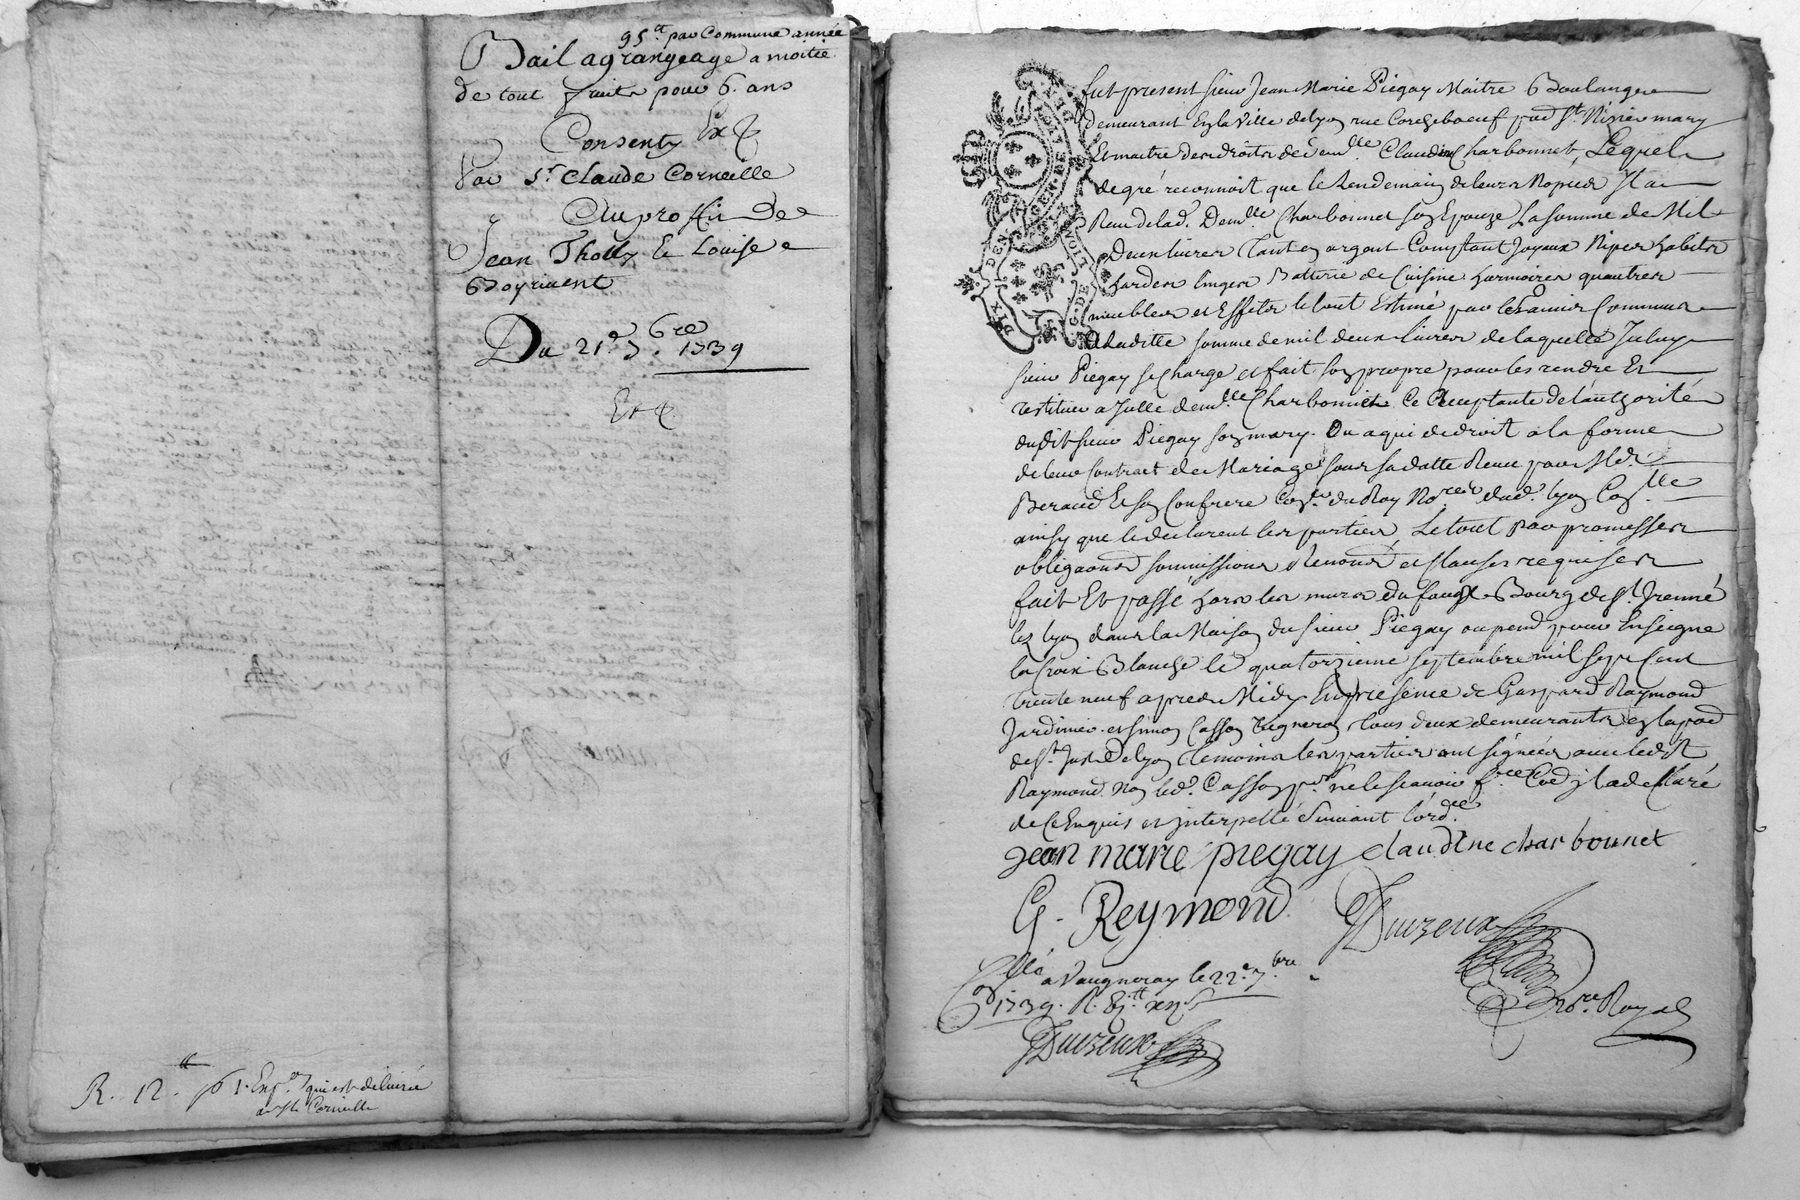 95.tt par Commune année
Bail agrangeage a moitié
de tout fruits pour 6. ans
Consenty
Par Sr. Claude Corneille
Au proffit De
Jean Tholly et Louise
Boyriuent
Du 21e. 7bre 1739
R. 12.tt 1. Expon qui est délivrée
aud. Sr. Corneille
fut present sieur Jean Marie Piegay Maitre Boulanger
demeurant En la Ville de lyon rue Corcheboeuf parr. St. Nizier mary
Et maitre des droits de demlle. Claudine Charbonnet, Lequel
de gré reconnoit que le Lendemain de leurs Nopces Il a
Receu de lad. Demlle. Charbonnet son Epouze La somme de Mil
deux livres tant en argent Comptant Joyaux Nipes habits
hardes linges Batterie de Cuisine harmoires quadres
meubles et Effets le tout Estimé par les amis Communs
A Ladite somme de mil deux livres de laquelle Iceluy
sieur Piegay se charge et fait son propre pour les rendre Et
restituer a Icelle demlle. Charbonnet Ce Acceptante de l'authorité
dudit sieur Piegay son mary. Ou a qui de droit a la forme
de leur Contract de Mariage sous sa datte Receu par Me.
Beraud Et son Confrere Coners. du Roy Nores. aud. lyon
ainsy que le declarent les parties, Le tout par promesses
obligaons soumissions Renonons et clauses requises
fait Et passé hors les murs du faux Bourg de St. Irenné
les lyon dans la Maison du sieur Piegay ou pend pour Enseigne
la Croix Blanche le quatorzieme septembre mil sept Cent
trente neuf apres Midy En presence de Gaspard Raymond
Jardinier et simon Casson Vigneron tous deux demeurants en la parr.
de St. Just de lyon temoins les parties ont signées avec ledit
Raymond. Non led. Casson pr. ne le scavoir f.re Coe il a declaré
de Ce Enquis et Interpellé Suivant l'ordce.
jean marie piegay claudine charbonnet
G. Reymond.
Duvzeux
nore. Royal
Conllé a Vaugneray le 22e. 7.bre
1739. R.
Duvzeux
GEN. DE LYON
DIX DEN.